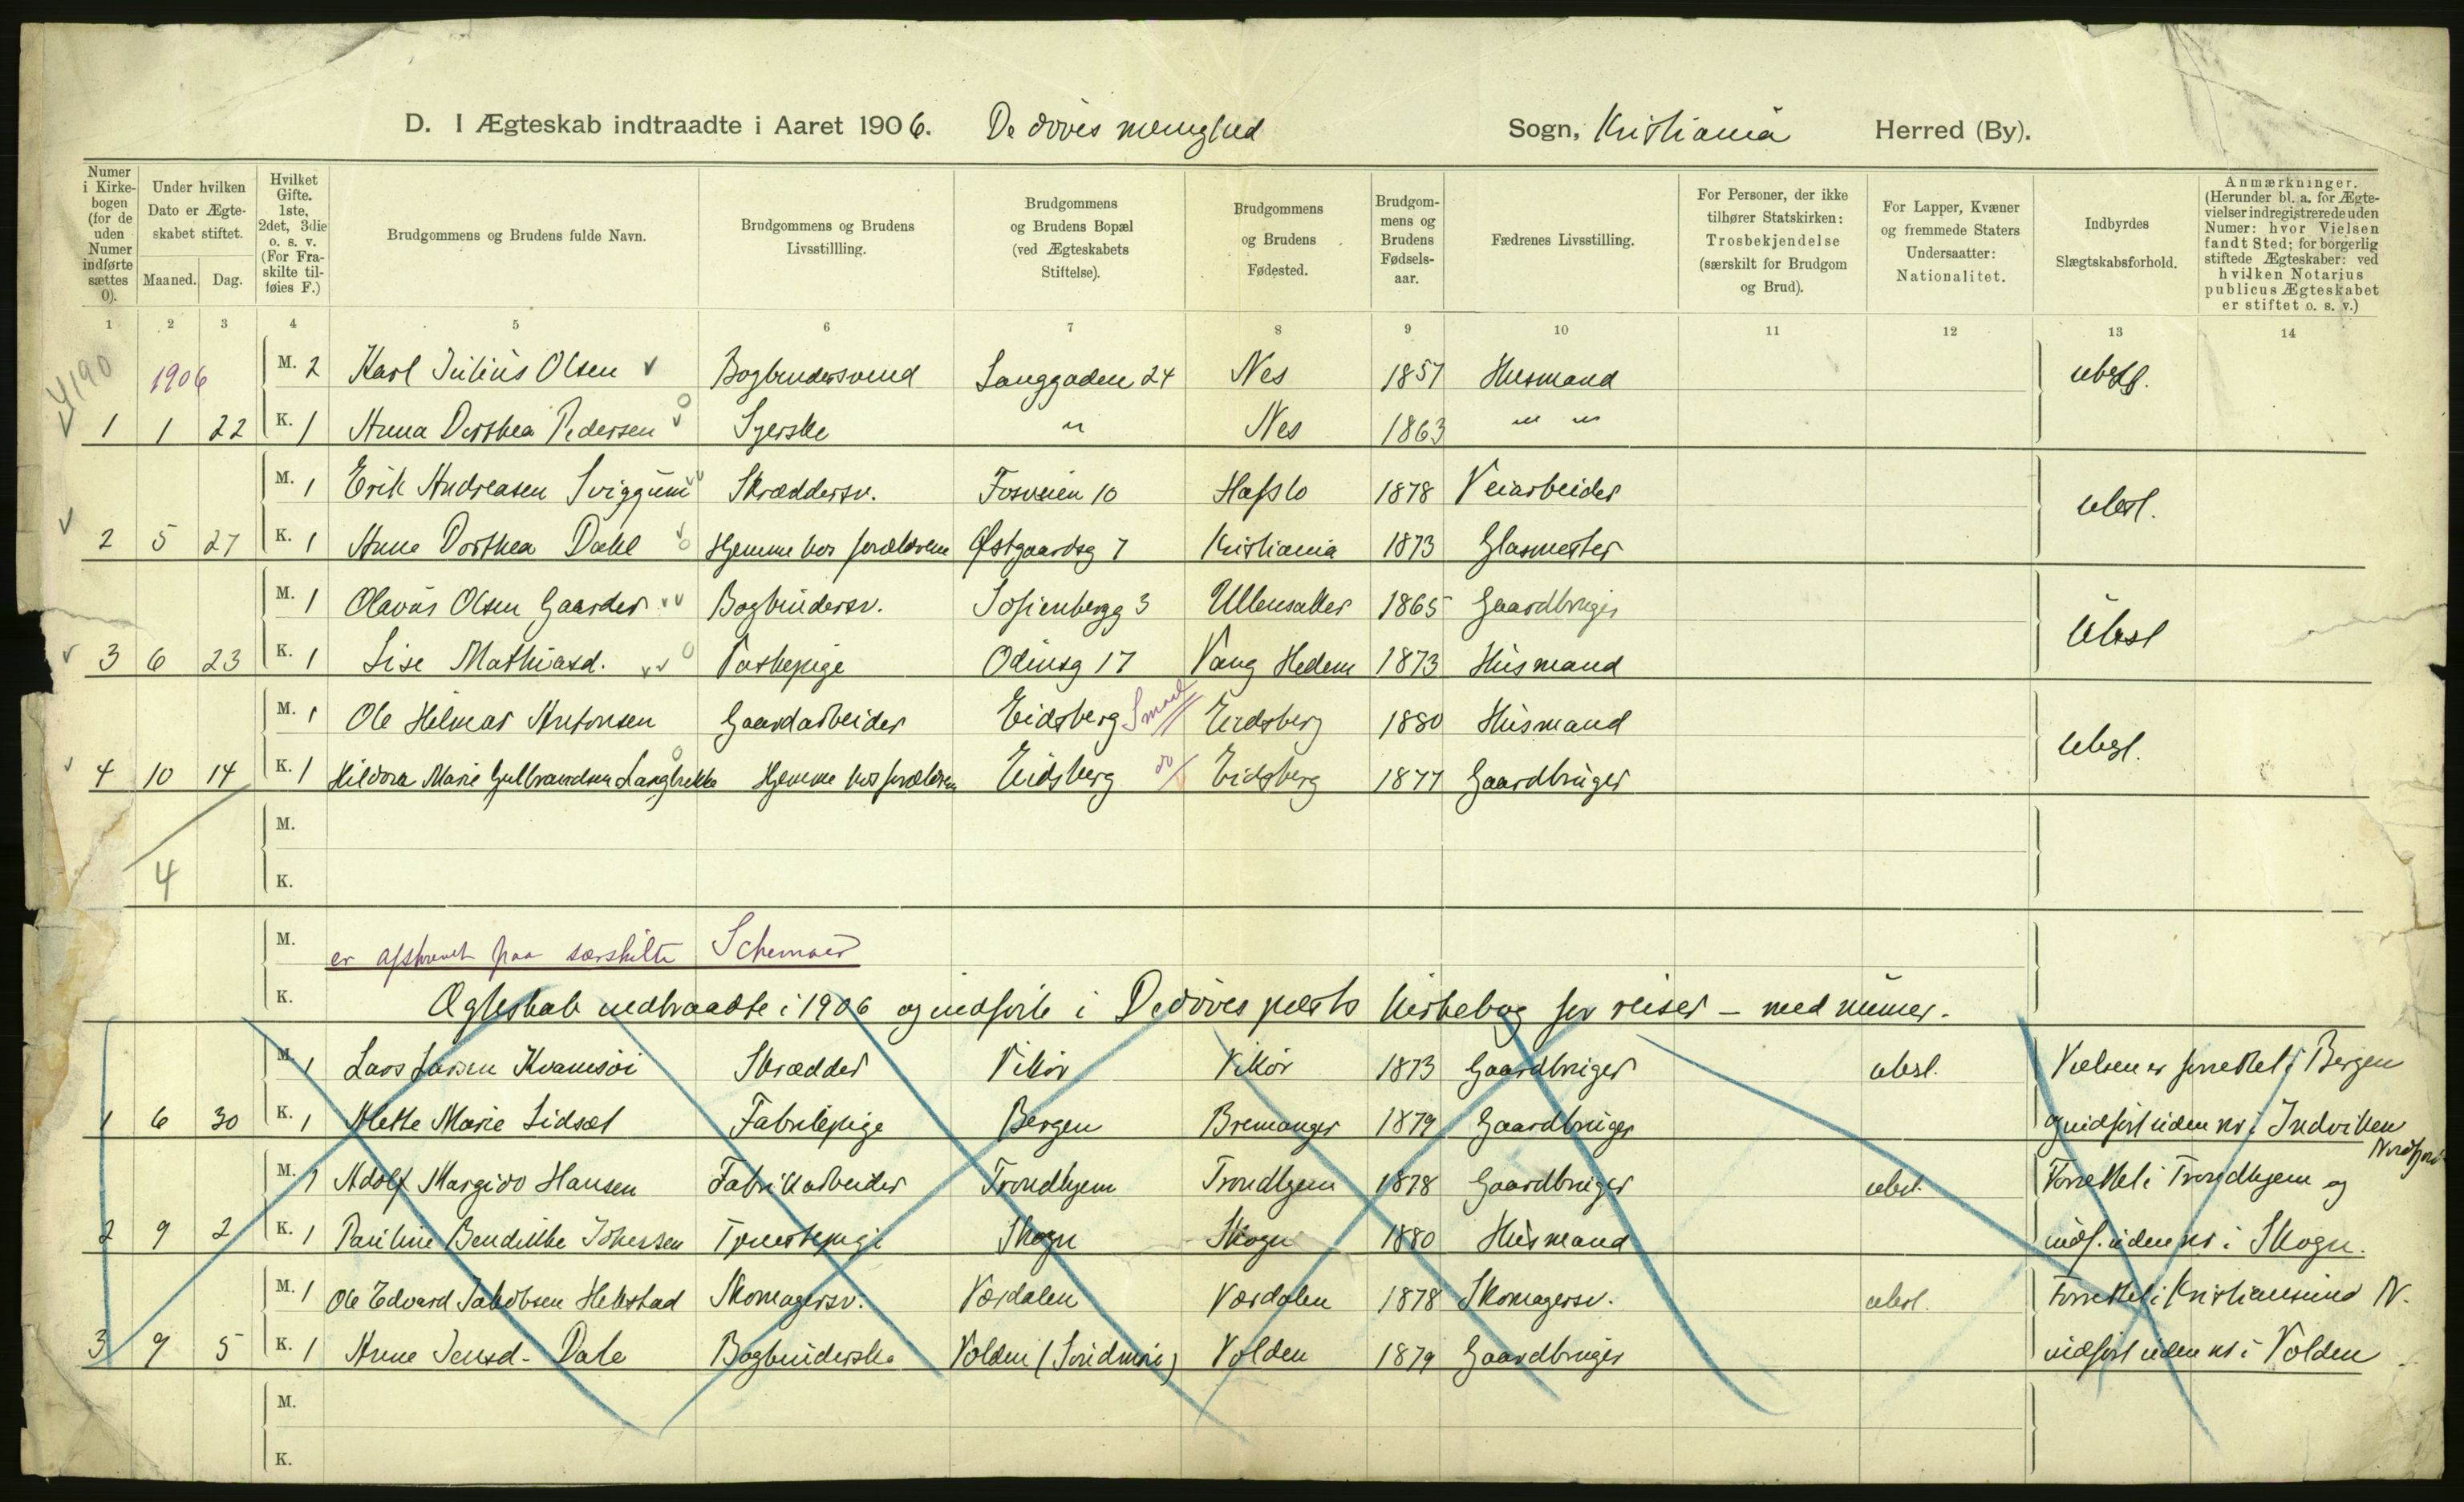 D. I Ægteskab indtraadte i Aaret 1906. De döves menighed Sogn, Kristiania Herred (By).
Numer i Kirkebogen (for de uden Numer indførte sættes 0).
Under hvilken Dato er Ægteskabet stiftet.
Maaned. Dag.
Hvilket Gifte. 1ste, 2det, 3die o. s. v. (For Fraskilte tilføies F.)
Brudgommens og Brudens fulde Navn.
Brudgommens og Brudens Livsstillling.
Brudgommens og Brudens Bopæl (ved Ægteskabets Stiftelse).
Brudgommens og Brudens Fødested.
Brudgommens og Brudens Fødselsaar.
Fædrenes Livsstilling.
For Personer, der ikke tilhører Statskirken: Trosbekjendelse (særskilt for Brudgom og Brud).
For Lapper, Kvæner og fremmede Staters Undersaatter: Nationalitet.
Indbyrdes Slægtskabsforhold.
Anmærkninger. (Herunder bl. a. for Ægtevielser indregistrerede uden Numer: hvor Vielsen fandt Sted; for borgerlig stiftede Ægteskaber: ved hvilken Notarius publicus Ægteskabet er stiftet o. s. v.)
1 2 3 4 5 6 7 8 9 10 11 12 13 14
4190 1906 M. 2 Karl Julius Olsen Bogbindersvend Langgaden 24 Nes 1857 Husmand ubesl.
1 1 22 K. 1 Anna Dorthea Pedersen Syerske " Nes 1863 " "
M. 1 Erik Andreasen Sviggum Skræddersv. Fosveien 10 Hafslo 1878 Veiarbeider ubesl.
2 5 27 K. 1 Anne Dorthea Dahl Hjemme hos forældrene Østgaardsg 7 Kristiania 1873 Glasmester
M. 1 Olavus Olsen Gaarder Bogbindersv. Sofienbergg 3 Ullensaker 1865 Gaardbruger Ubesl
3 6 23 K. 1 Lise Mathiasd. Vaskepige Odinsg 17 Vang Hedem 1873 Husmand
M. 1 Ole Helmar Antonsen Gaardarbeider Eidsberg Smaal Eidsberg 1880 Husmand ubesl.
4 10 14 K. 1 Hildora Marie Gulbrandsen Langbrekke Hjemme hos forældren Eidsberg do Eidsberg 1877 Gaardbruger
M.
4 K.
M. er afskrevet paa særskilte Schemaer
K. Ægteskab indtraadte i 1906 og indförte i De döves prests kirkebog for reiser – med numer.
M. 1 Lars Larsen Kvamsöi Skrædder Vikör Vikör 1873 Gaardbruger ubesl. Vielsen er forrettet i Bergen
1 6 30 K. 1 Mette Marie Lidsæt Fabrikpige Bergen Bremanger 1879 Gaardbruger og indfört uden nr i Indviken Nordfjord
M. 1 Adolf Margido Hansen Fabrikarbeider Trondhjem Trondhjem 1878 Gaardbruger ubesl. Forrettet i Trondhjem og
2 9 2 K. 1 Pauline Bendikke Johnsen Tjenestepige Skogn Skogn 1880 Husmand indf. uden nr i Skogn.
M. 1 Ole Edvard Jakobsen Helstad Skomagersv. Værdalen Værdalen 1878 Skomagersv. ubesl. Forrettet i Kristiansund N.
3 9 5 K. 1 Anne Jensd. Dale Bogbinderske Volden (Söndmöre) Volden 1879 Gaardbruger indfört uden nr i Volden
M.
K.